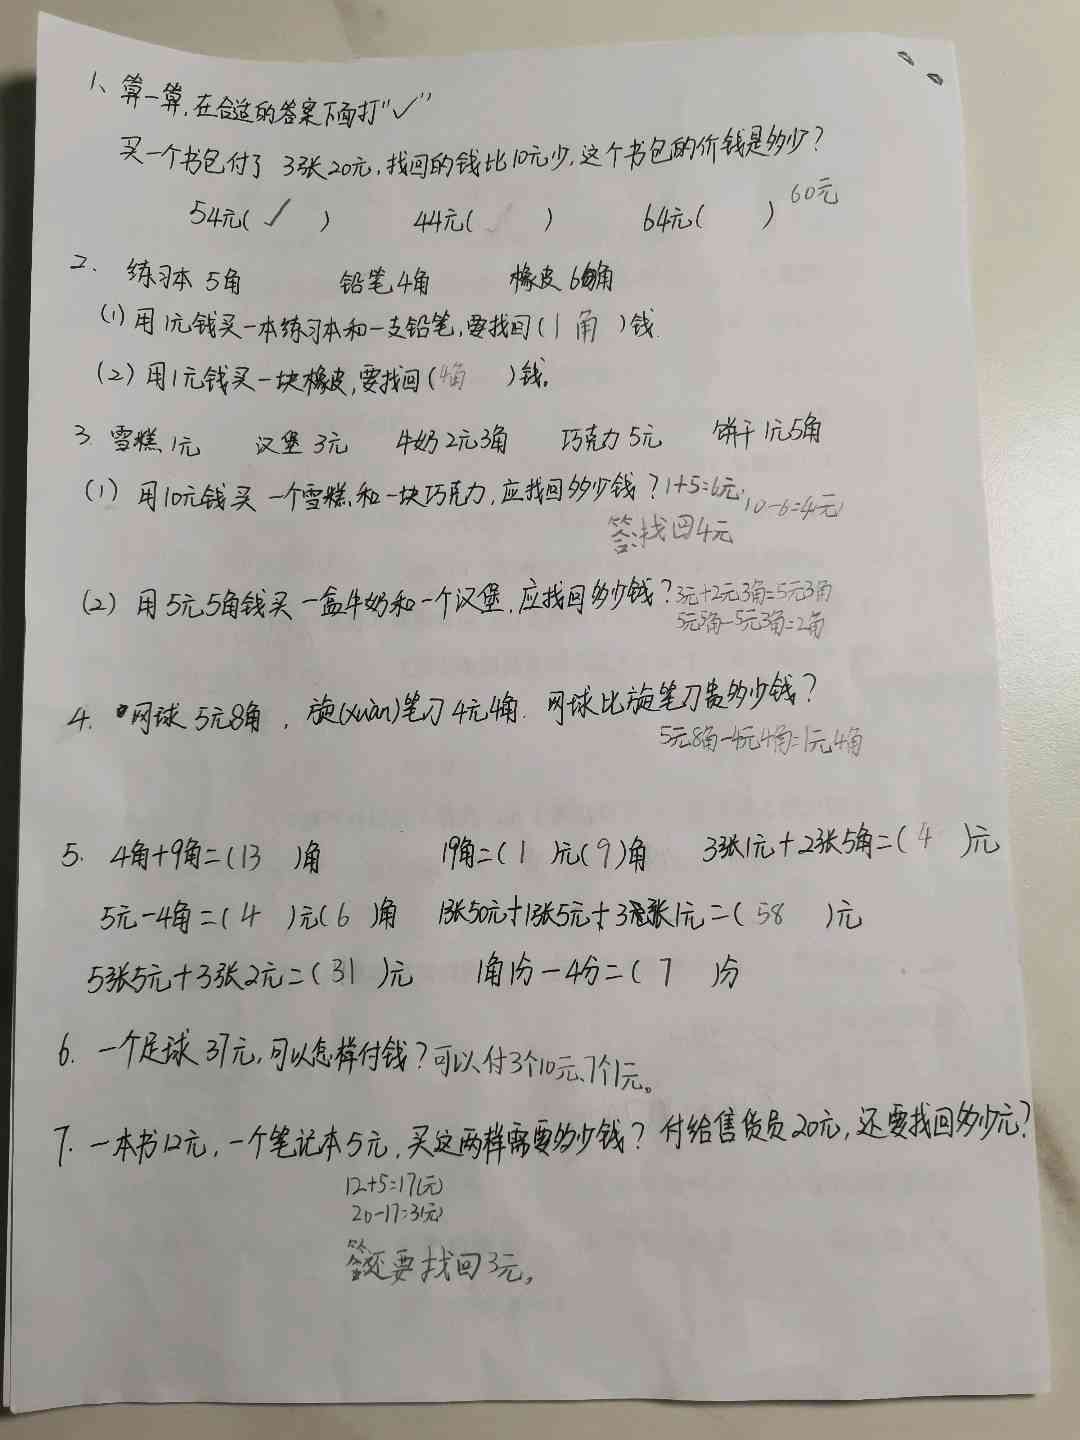 1、算一算,在合适的答案下面打"✓"
买一个书包付了 3张20元,找回的钱比10元少,这个书包的价钱是多少?
60元
54元( ✓ ) 44元( ✓ ) 64元( )
2、练习本 5角 铅笔4角 橡皮 6角
(1)用1元钱买一本练习本和一支铅笔,要找回(1角)钱.
(2)用1元钱买一块橡皮,要找回(4角)钱。
3、雪糕1元 汉堡3元 牛奶2元3角 巧克力5元 饼干1元5角
(1)用10元钱买一个雪糕和一块巧克力,应找回多少钱?1+5=6元. 10-6=4元
答:找回4元
(2)用5元5角钱买一盒牛奶和一个汉堡,应找回多少钱?3元+2元3角=5元3角
5元5角-5元3角=2角
4. 网球 5元8角,旋(xuàn)笔刀4元4角.网球比旋笔刀贵多少钱?
5元8角-4元4角=1元4角
5. 4角+9角=(13)角 19角=(1)元(9)角 3张1元+2张5角=(4)元
5元-4角=(4)元(6)角 1张50元+1张5元+3张1元=(58)元
5张5元+3张2元=(31)元 1角1分-4分=(7)分
6. 一个足球37元,可以怎样付钱?可以付3个10元、7个1元。
7. 一本书12元,一个笔记本5元,买这两样需要多少钱?付给售货员20元,还要找回多少元?
12+5=17(元)
20-17=3(元)
答:还要找回3元,